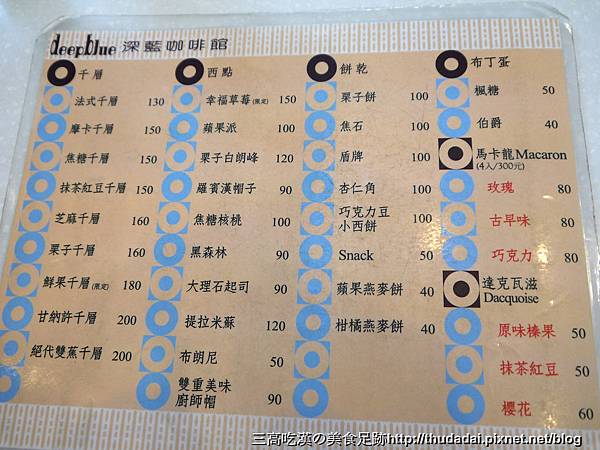 deepblue 深藍咖啡館
千層
法式千層 130
摩卡千層 150
焦糖千層 150
抹茶紅豆千層 150
芝麻千層 160
栗子千層 160
鮮果千層(限定) 180
甘納許千層 200
絕代雙蕉千層 200
西點
幸福草莓(限定) 150
蘋果派 100
栗子白朗峰 120
羅賓漢帽子 90
焦糖核桃 100
黑森林 90
大理石起司 90
提拉米蘇 120
布朗尼 50
雙重美味
廚師帽 90
餅乾
栗子餅 100
焦石 100
盾牌 100
杏仁角 100
巧克力豆
小西餅 100
Snack 50
蘋果燕麥餅 40
柑橘燕麥餅 40
布丁蛋
楓糖 50
伯爵 40
馬卡龍Macaron
(4入/300元)
玫瑰 80
古早味 80
巧克力 80
達克瓦滋
Dacquoise
原味榛果 50
抹茶紅豆 50
櫻花 60
三高吃漢の美食足跡http://thudadai.pixnet.net/blog